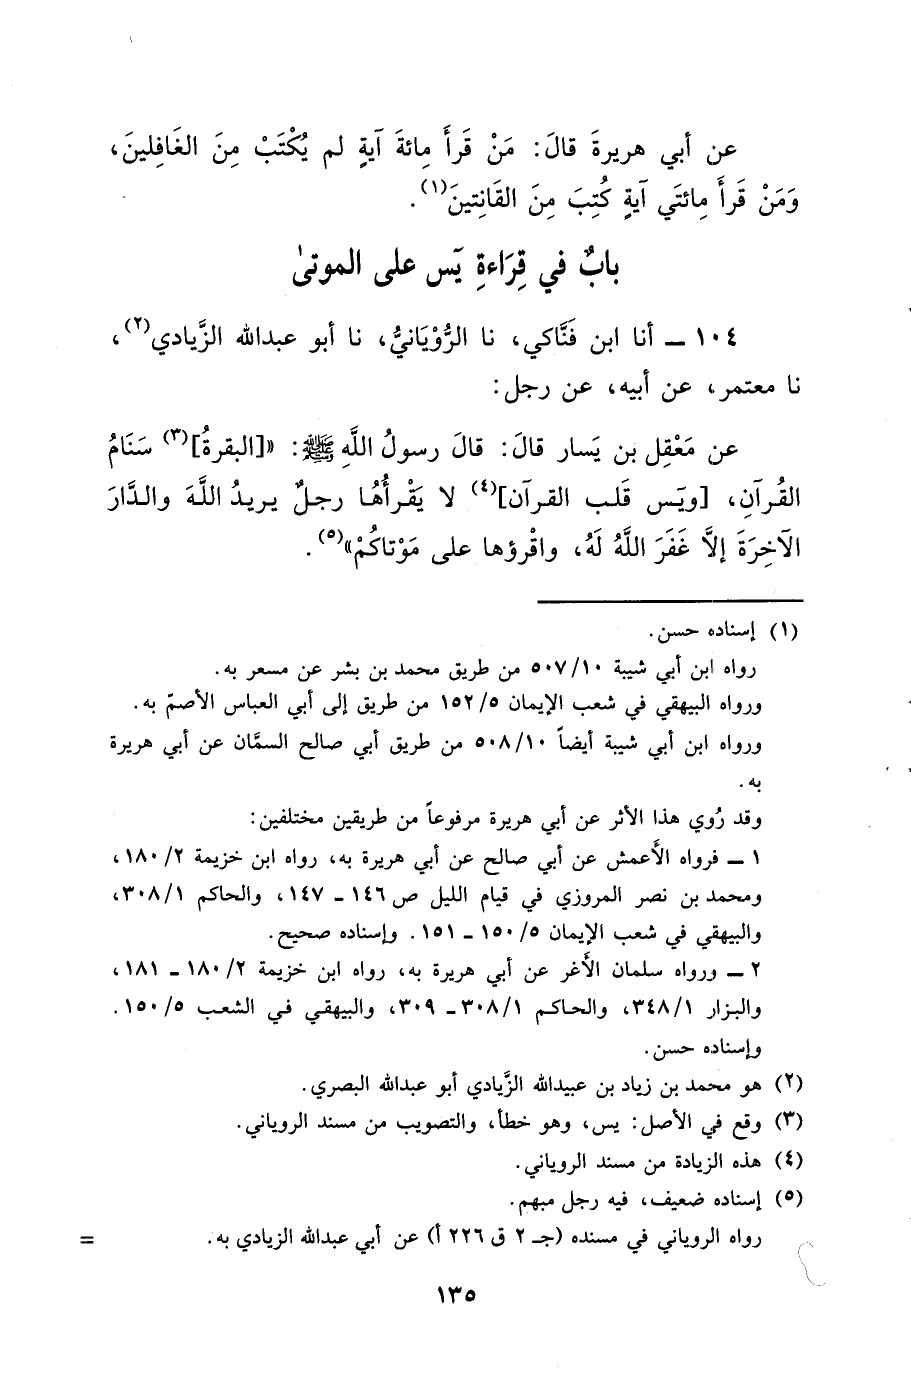 عن أبي هريرةَ قالَ: مَنْ قَرأَ مِائةَ آيةٍ لم يُكْتَبْ مِنَ الغَافِلينَ،
وَمَنْ قَرأَ مِائتَي آيةٍ كُتِبَ مِنَ القَانِتينَ(١).
بابٌ في قِرَاءةِ يَس على الموتىٰ
١٠٤ ــ أنا ابن فَنَّاكي، نا الرُّوْيَانيُّ، نا أبو عبدالله الزَّيادي(٢)،
نا معتمر، عن أبيه، عن رجل:
عن مَعْقِل بن يَسار قالَ: قالَ رسولُ اللَّهِ ﷺ: «[البقرةُ](٣) سَنَامُ
القُرآنِ، [ويَس قَلب القرآن](٤) لا يَقْرأُهَا رجلٌ يريدُ اللَّهَ والدَّارَ
الآخِرَةَ إلاَّ غَفَرَ اللَّهُ لَهُ، واقْرؤها على مَوْتاكُمْ»(٥).
(١) إسناده حسن.
رواه ابن أبي شيبة ٥٠٧/١٠ من طريق محمد بن بشر عن مسعر به.
ورواه البيهقي في شعب الإيمان ١٥٢/٥ من طريق إلى أبي العباس الأصمّ به.
ورواه ابن أبي شيبة أيضاً ٥٠٨/١٠ من طريق أبي صالح السمَّان عن أبي هريرة
به.
وقد رُوي هذا الأثر عن أبي هريرة مرفوعاً من طريقين مختلفين:
١ ــ فرواه الأَعمش عن أبي صالح عن أبي هريرة به، رواه ابن خزيمة ١٨٠/٢،
ومحمد بن نصر المروزي في قيام الليل ص ١٤٦ ـ ١٤٧، والحاكم ٣٠٨/١،
والبيهقي في شعب الإيمان ١٥٠/٥ ـ ١٥١. وإسناده صحيح.
٢ ــ ورواه سلمان الأَغر عن أبي هريرة به، رواه ابن خزيمة ١٨٠/٢ ـ ١٨١،
والبزار ٣٤٨/١، والحاكم ٣٠٨/١ ـ ٣٠٩، والبيهقي في الشعب ١٥٠/٥.
وإسناده حسن.
(٢) هو محمد بن زياد بن عبيدالله الزَّيادي أبو عبدالله البصري.
(٣) وقع في الأصل: يس، وهو خطأ، والتصويب من مسند الروياني.
(٤) هذه الزيادة من مسند الروياني.
(٥) إسناده ضعيف، فيه رجل مبهم.
رواه الروياني في مسنده (جـ ٢ ق ٢٢٦ أ) عن أبي عبدالله الزيادي به. =
١٣٥